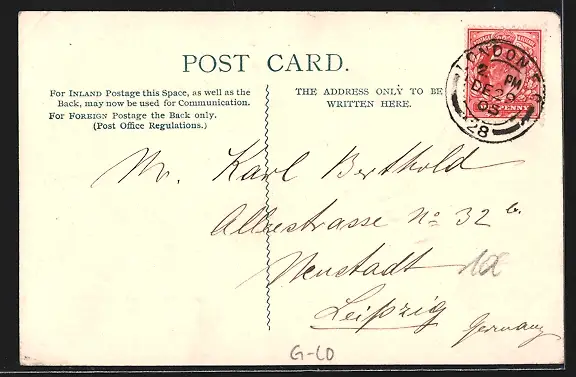 POST CARD.
For INLAND Postage this Space, as well as the
Back, may now be used for Communication.
For FOREIGN Postage the Back only.
(Post Office Regulations.)
THE ADDRESS ONLY TO BE
WRITTEN HERE.
LONDON
PM
DE 28
28
PENNY
Mr. Karl Berthold
No 32 b.
Neustadt
Leipzig
Germany
G-LO